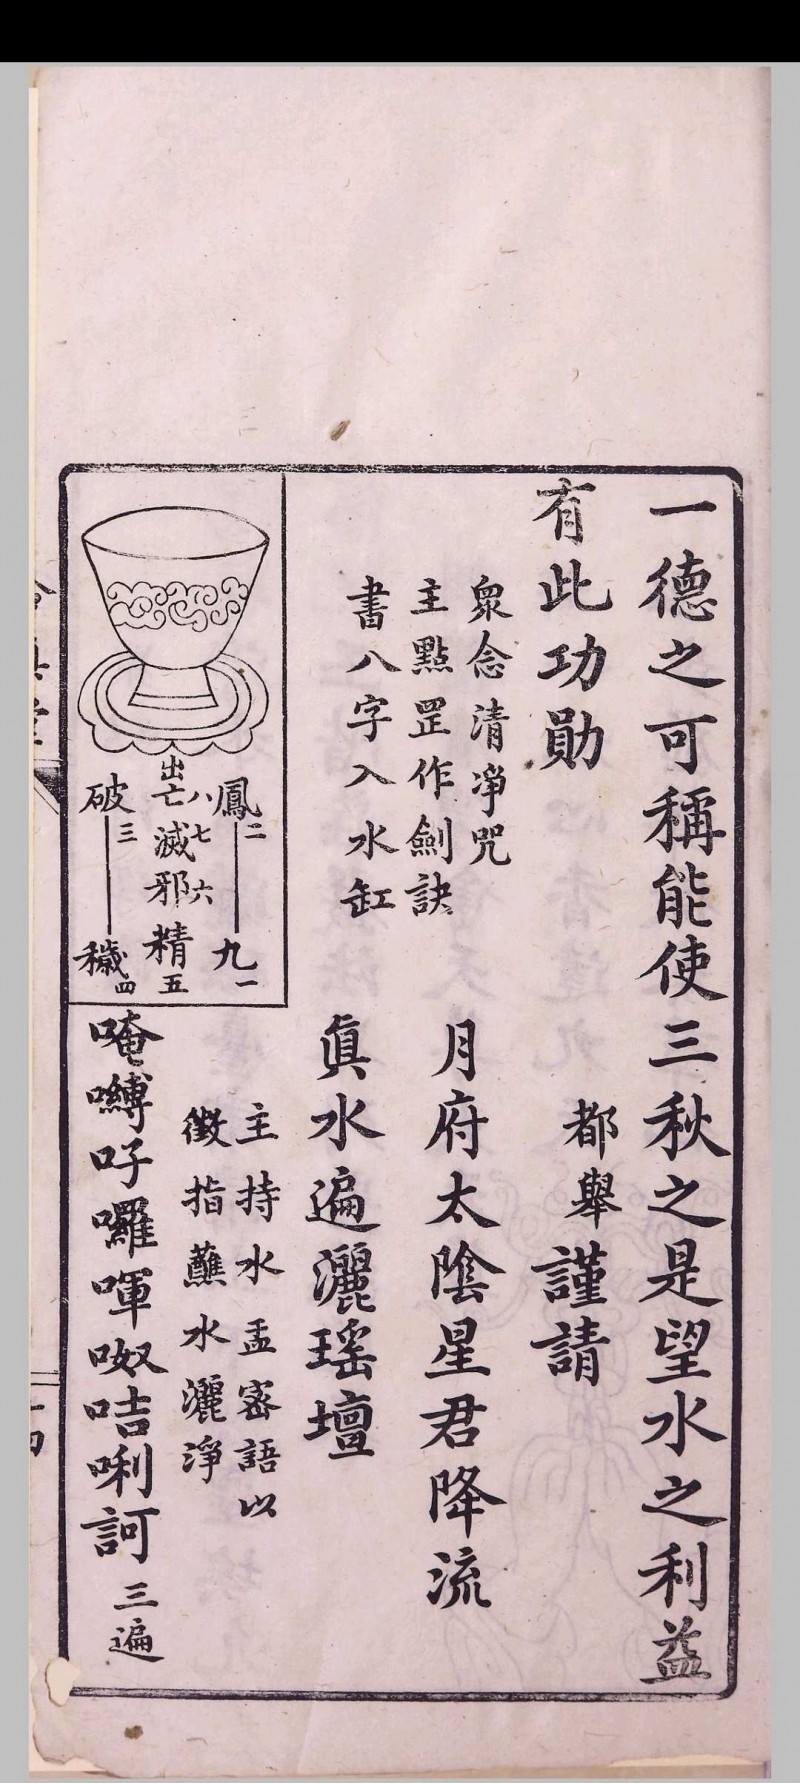 一德之可稱能使三秋之是望水之利益
有此功勛
都舉謹請
衆念清淨咒
主點罡作劍訣
書八字入水缸
月府太陰星君降流
眞水遍灑瑤壇
主持水盂密語以
徵指蘸水灑淨
鳳二
九一
出亡八
滅七
邪六
精五
破三
穢四
唵嚩吇囉喗呶咭唎訶三遍